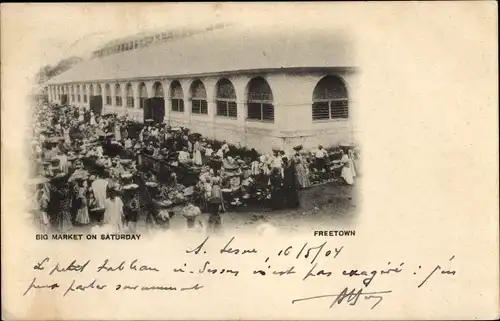 BIG MARKET ON SATURDAY
FREETOWN
S. Leone 16/5/04
Le petit tableau ci-dessus n'est pas exagéré ; j'en
puis parler savamment